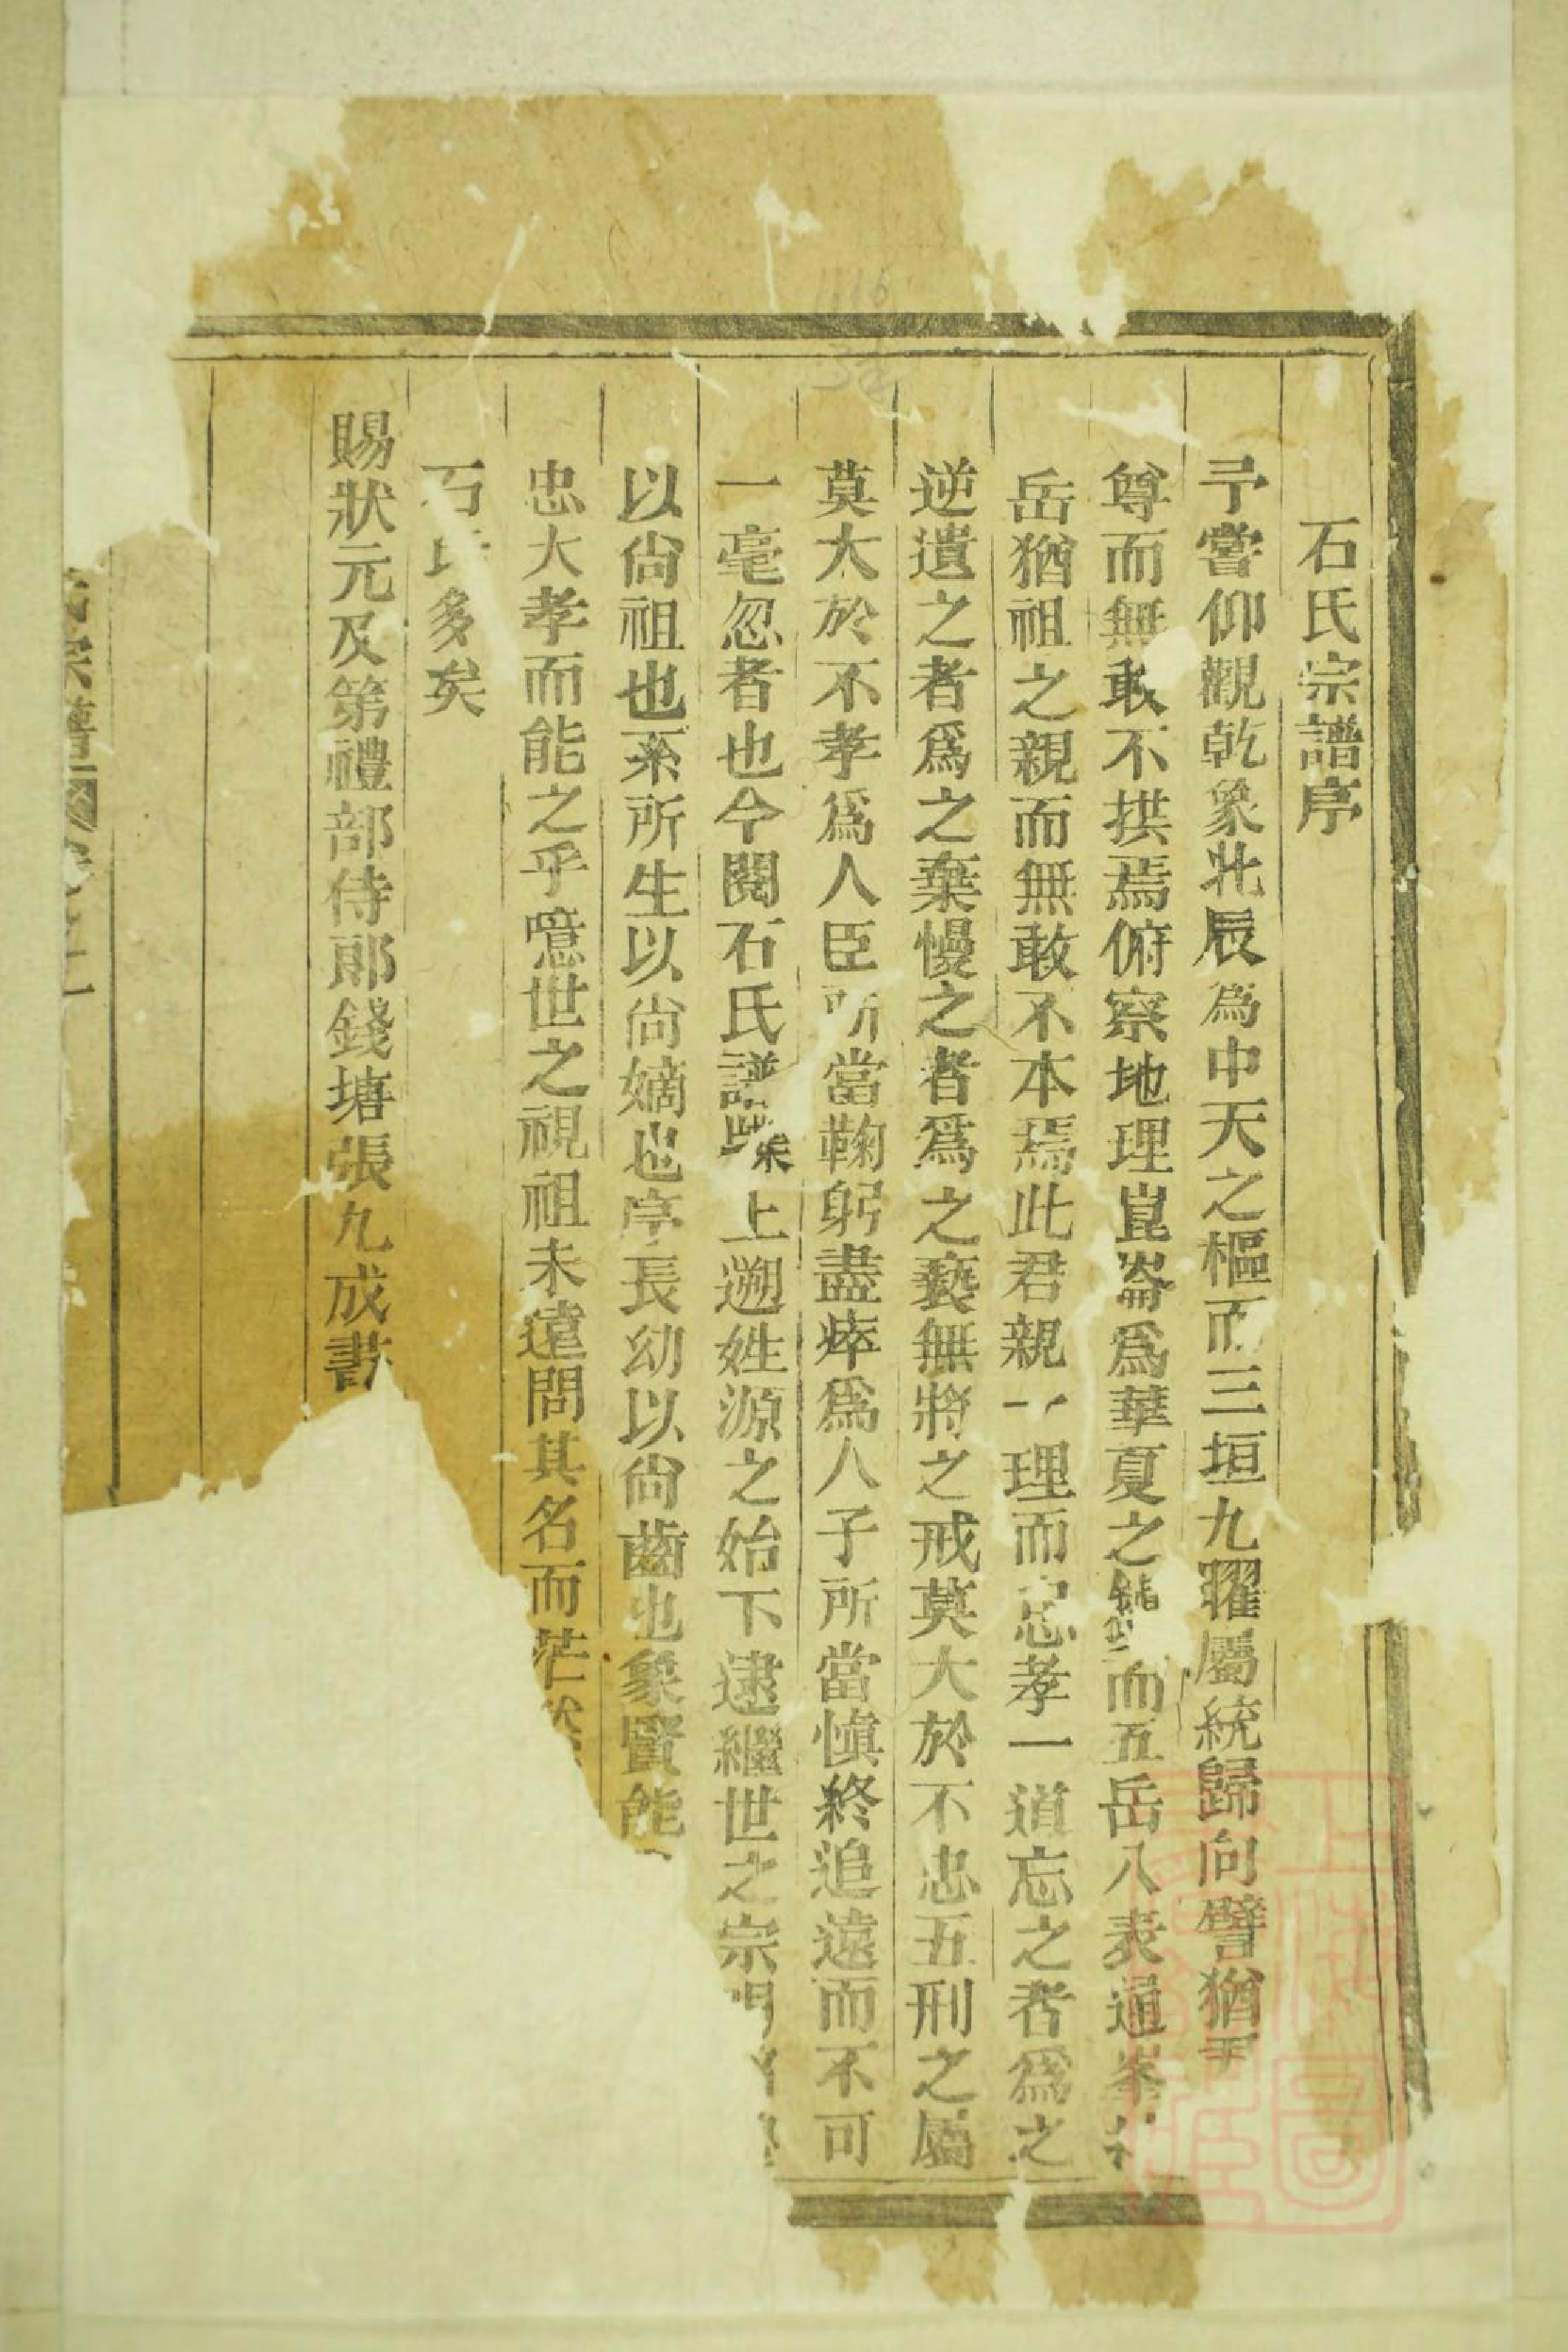 石氏宗譜序
予嘗仰觀乾象北辰爲中天之樞而三垣九曜屬統歸向譬猶君
尊而無敢不拱焉俯察地理崑崙爲華夏之鎮而五岳八表通峯
岳猶祖之親而無敢不本焉此君親一理而忠孝一道忘之者爲之
逆遺之者爲之棄慢之者爲之褻無將之戒莫大於不忠五刑之屬
莫大於不孝爲人臣所當鞠躬盡瘁爲人子所當慎終追遠而不可
一毫忽者也今閱石氏譜牒上遡姓源之始下逮繼世之宗明
以尙祖也系所生以尙嫡也序長幼以尙齒也象賢能
忠大孝而能之乎噫世之視祖未遠問其名而茫然
石氏多矣
賜狀元及第禮部侍郎錢塘張九成書
氏宗譜 卷之一
1116
上海圖書館藏